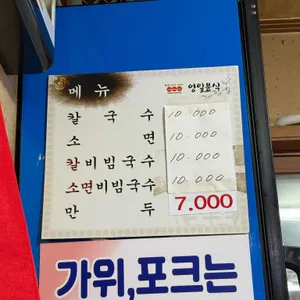 메뉴
영일음식
칼국수 10.000
소면 10.000
칼비빔국수 10.000
소면비빔국수 10.000
만두 7.000
가위,포크는